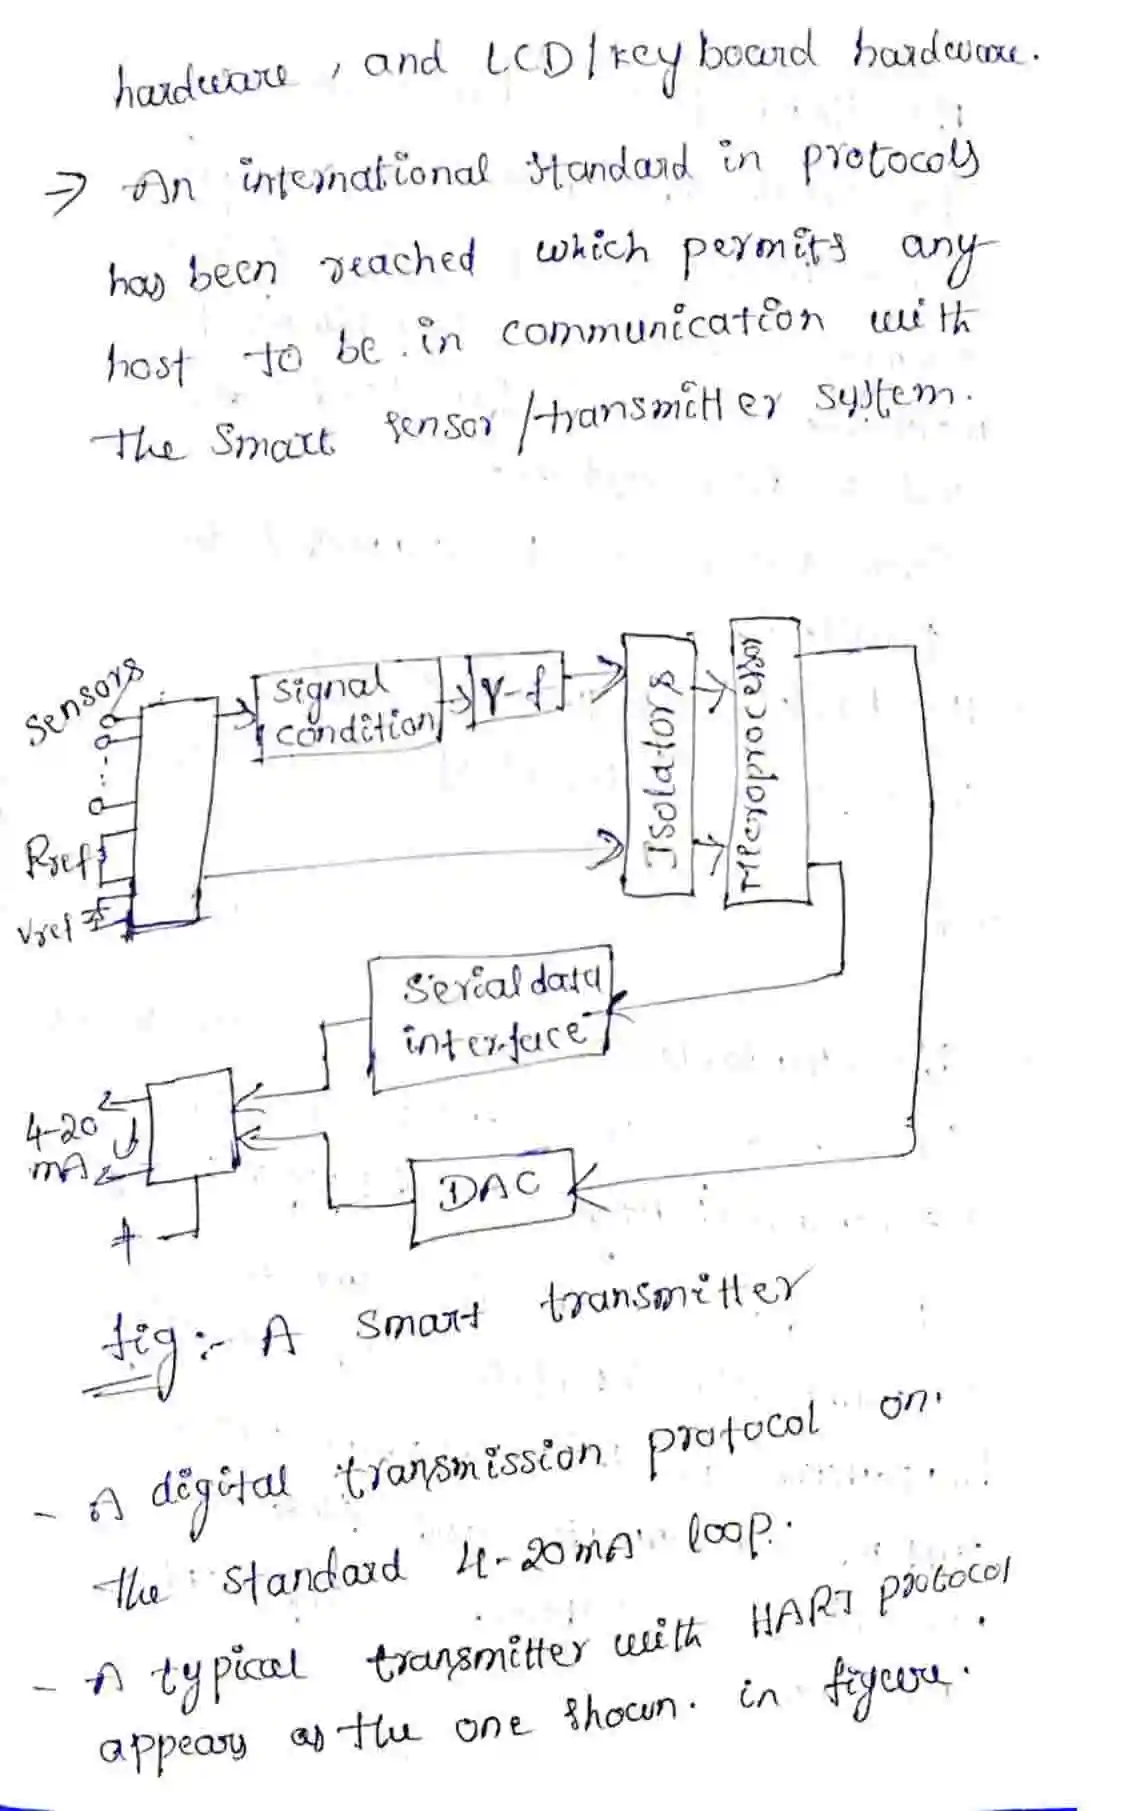 hardware, and LCD/key board hardware.
⇒ An international standard in protocols
has been reached which permits any
host to be in communication with
the smart sensor/transmitter system.
sensors
signal
condition
V-f
Isolators
Microprocessor
Rref
Vref
serial data
interface
4-20
mA
DAC
+
fig:- A smart transmitter
- A digital transmission protocol on
the standard 4-20mA loop.
- A typical transmitter with HART protocol
appears as the one shown. in figure.